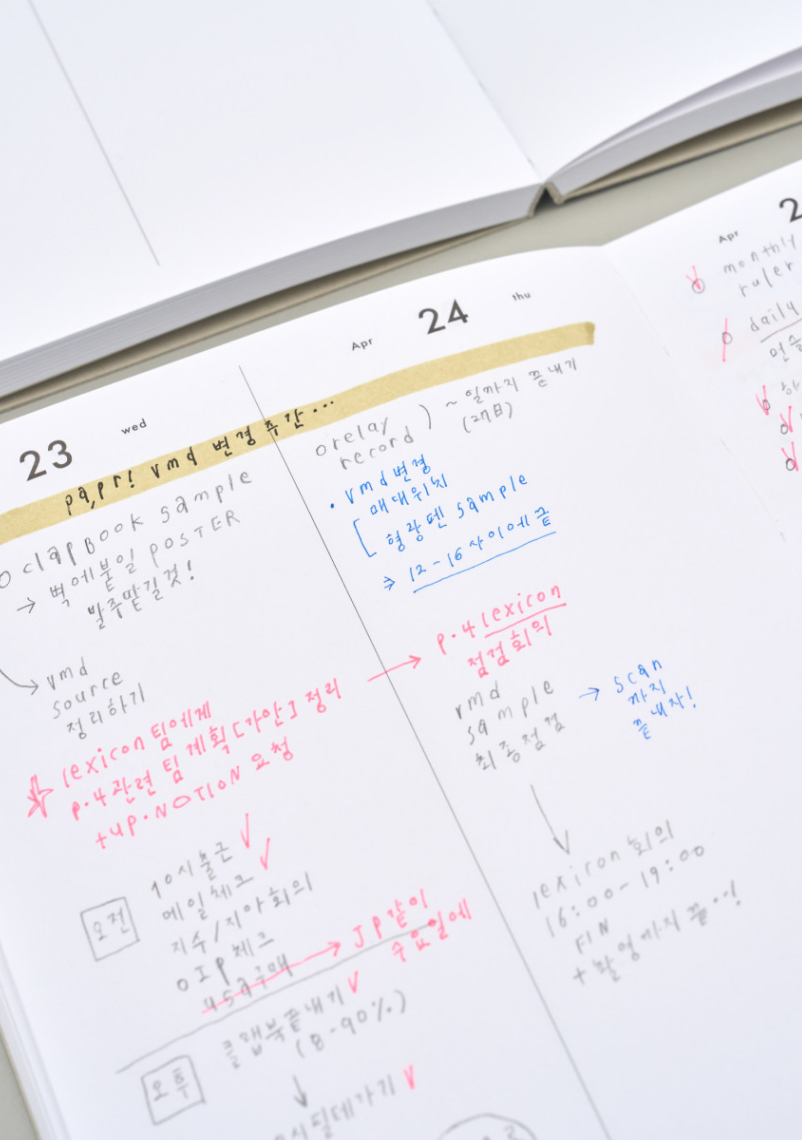 23
wed
pa,pr! vmd 변경주간...
o clapBook sample
→ 벽에붙일 POSTER
발주맡길것!
→ vmd
source
정리하기
lexicon 팀에게
p.4관련 팀 계획[가안] 정리
+up.NOTION 요청
오전
10시출근
메일체크
지수/지아회의
o IP체크
→ JP같이
수요일에
오후
클랩북끝내기
(8-90%)
Apr
24
thu
o relay
record
~ 일까지 끝내기
(27日)
• vmd변경
매대위치
형광펜 sample
⇒ 12-16 사이에 끝
→ p.4 lexicon
점검회의
vmd
sample
최종점검
→ scan
까지
끝내자!
lexicon 회의
16:00-19:00
FIN
+ 촬영까지 끝..!
Apr
2
monthly
ruler
daily